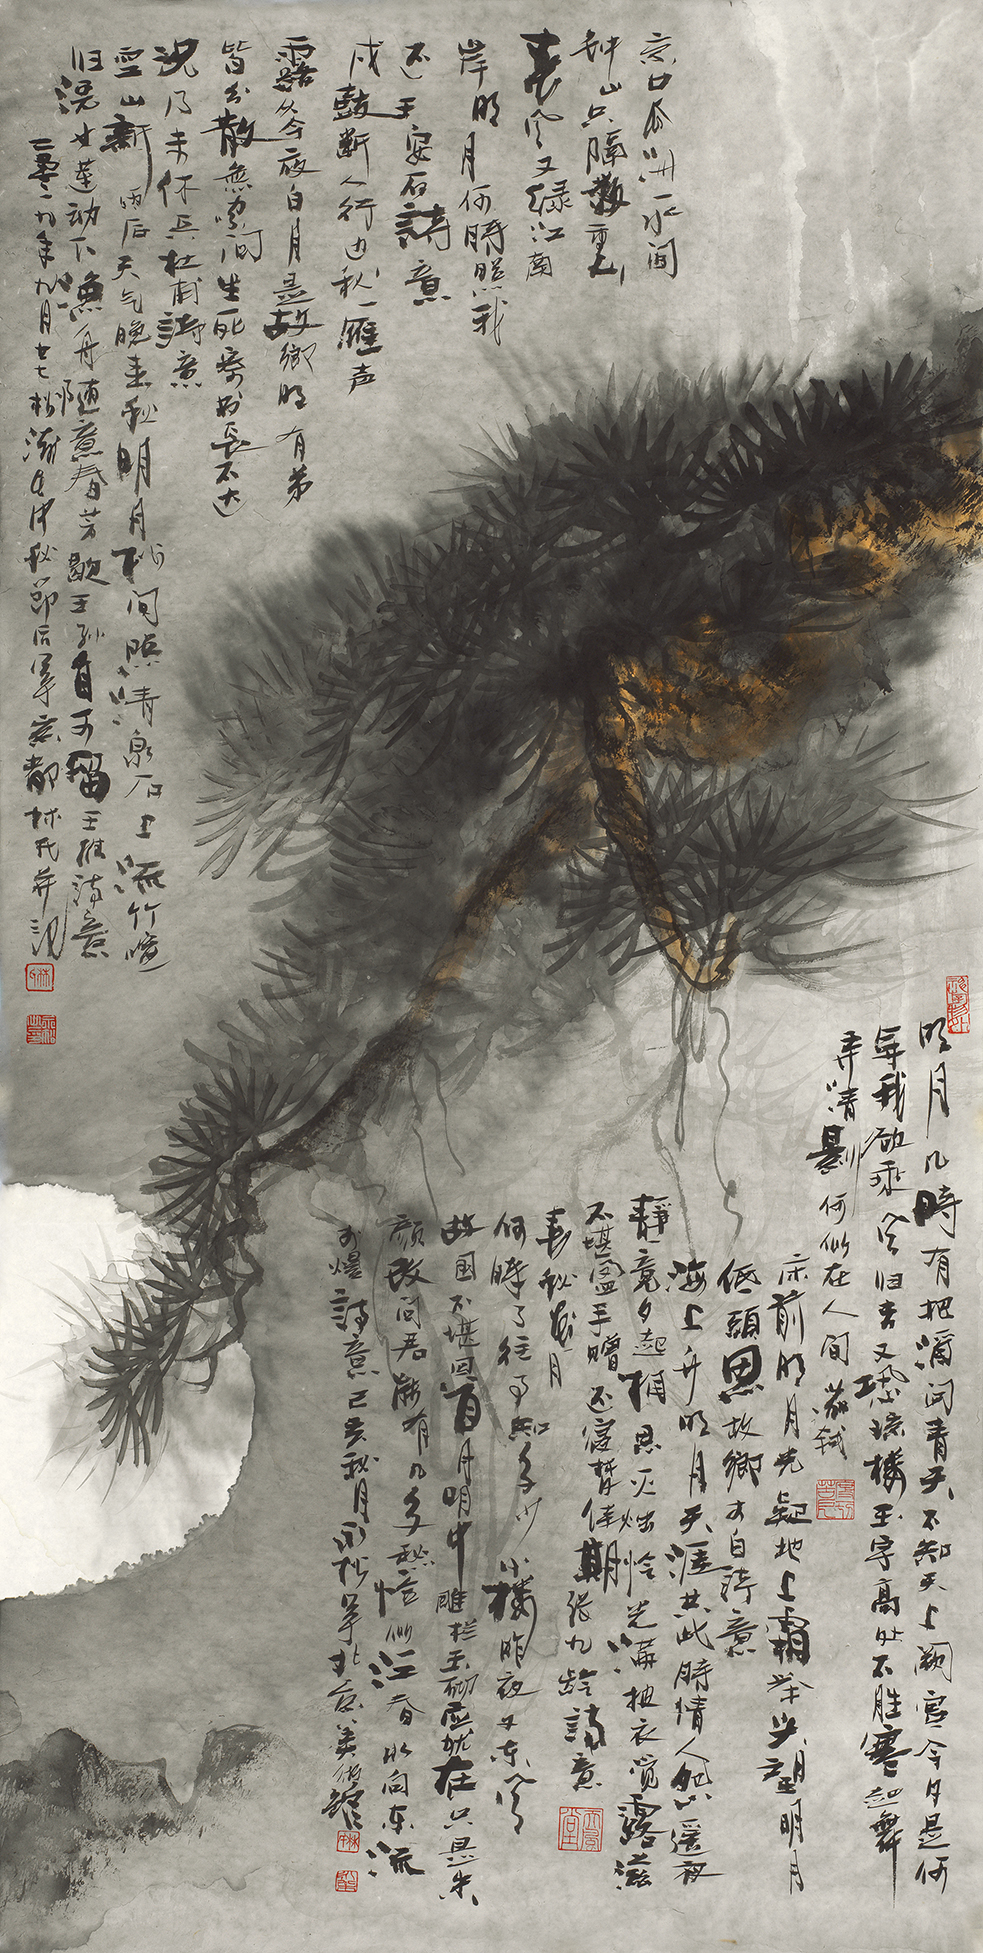 京口瓜洲一水间
钟山只隔数重山
春风又绿江南
岸明月何時照我
还王安石詩意
戍鼓断人行边秋一雁声
露从今夜白月是故鄉明有弟
皆分散無家问生死寄书長不达
况乃未休兵杜甫詩意
空山新雨后天气晚来秋明月松间照清泉石上流竹喧
归浣女莲动下渔舟随意春芳歇王孙自可留王维詩意
二零一九年九月廿七松中秋節后筆京都林凡并记
明月几時有把酒问青天不知天上阙宫今夕是何
年我欲乘风归去又恐琼楼玉宇高处不胜寒起舞
弄清影何似在人间苏轼
床前明月光疑地上霜举头望明月
低頭思故鄉李白詩意
海上升明月天涯共此時情人怨遥夜
静竟夕起相思灭烛怜光满披衣觉露滋
不堪盈手贈还寝梦佳期张九龄詩意
春秋花月
何時了往事知多少小楼昨夜又东风
故国不堪回首月明中雕栏玉砌应犹在只是朱
颜改问君能有几多愁恰似江春水向东流
李煜詩意己亥秋月松筆北京美術館